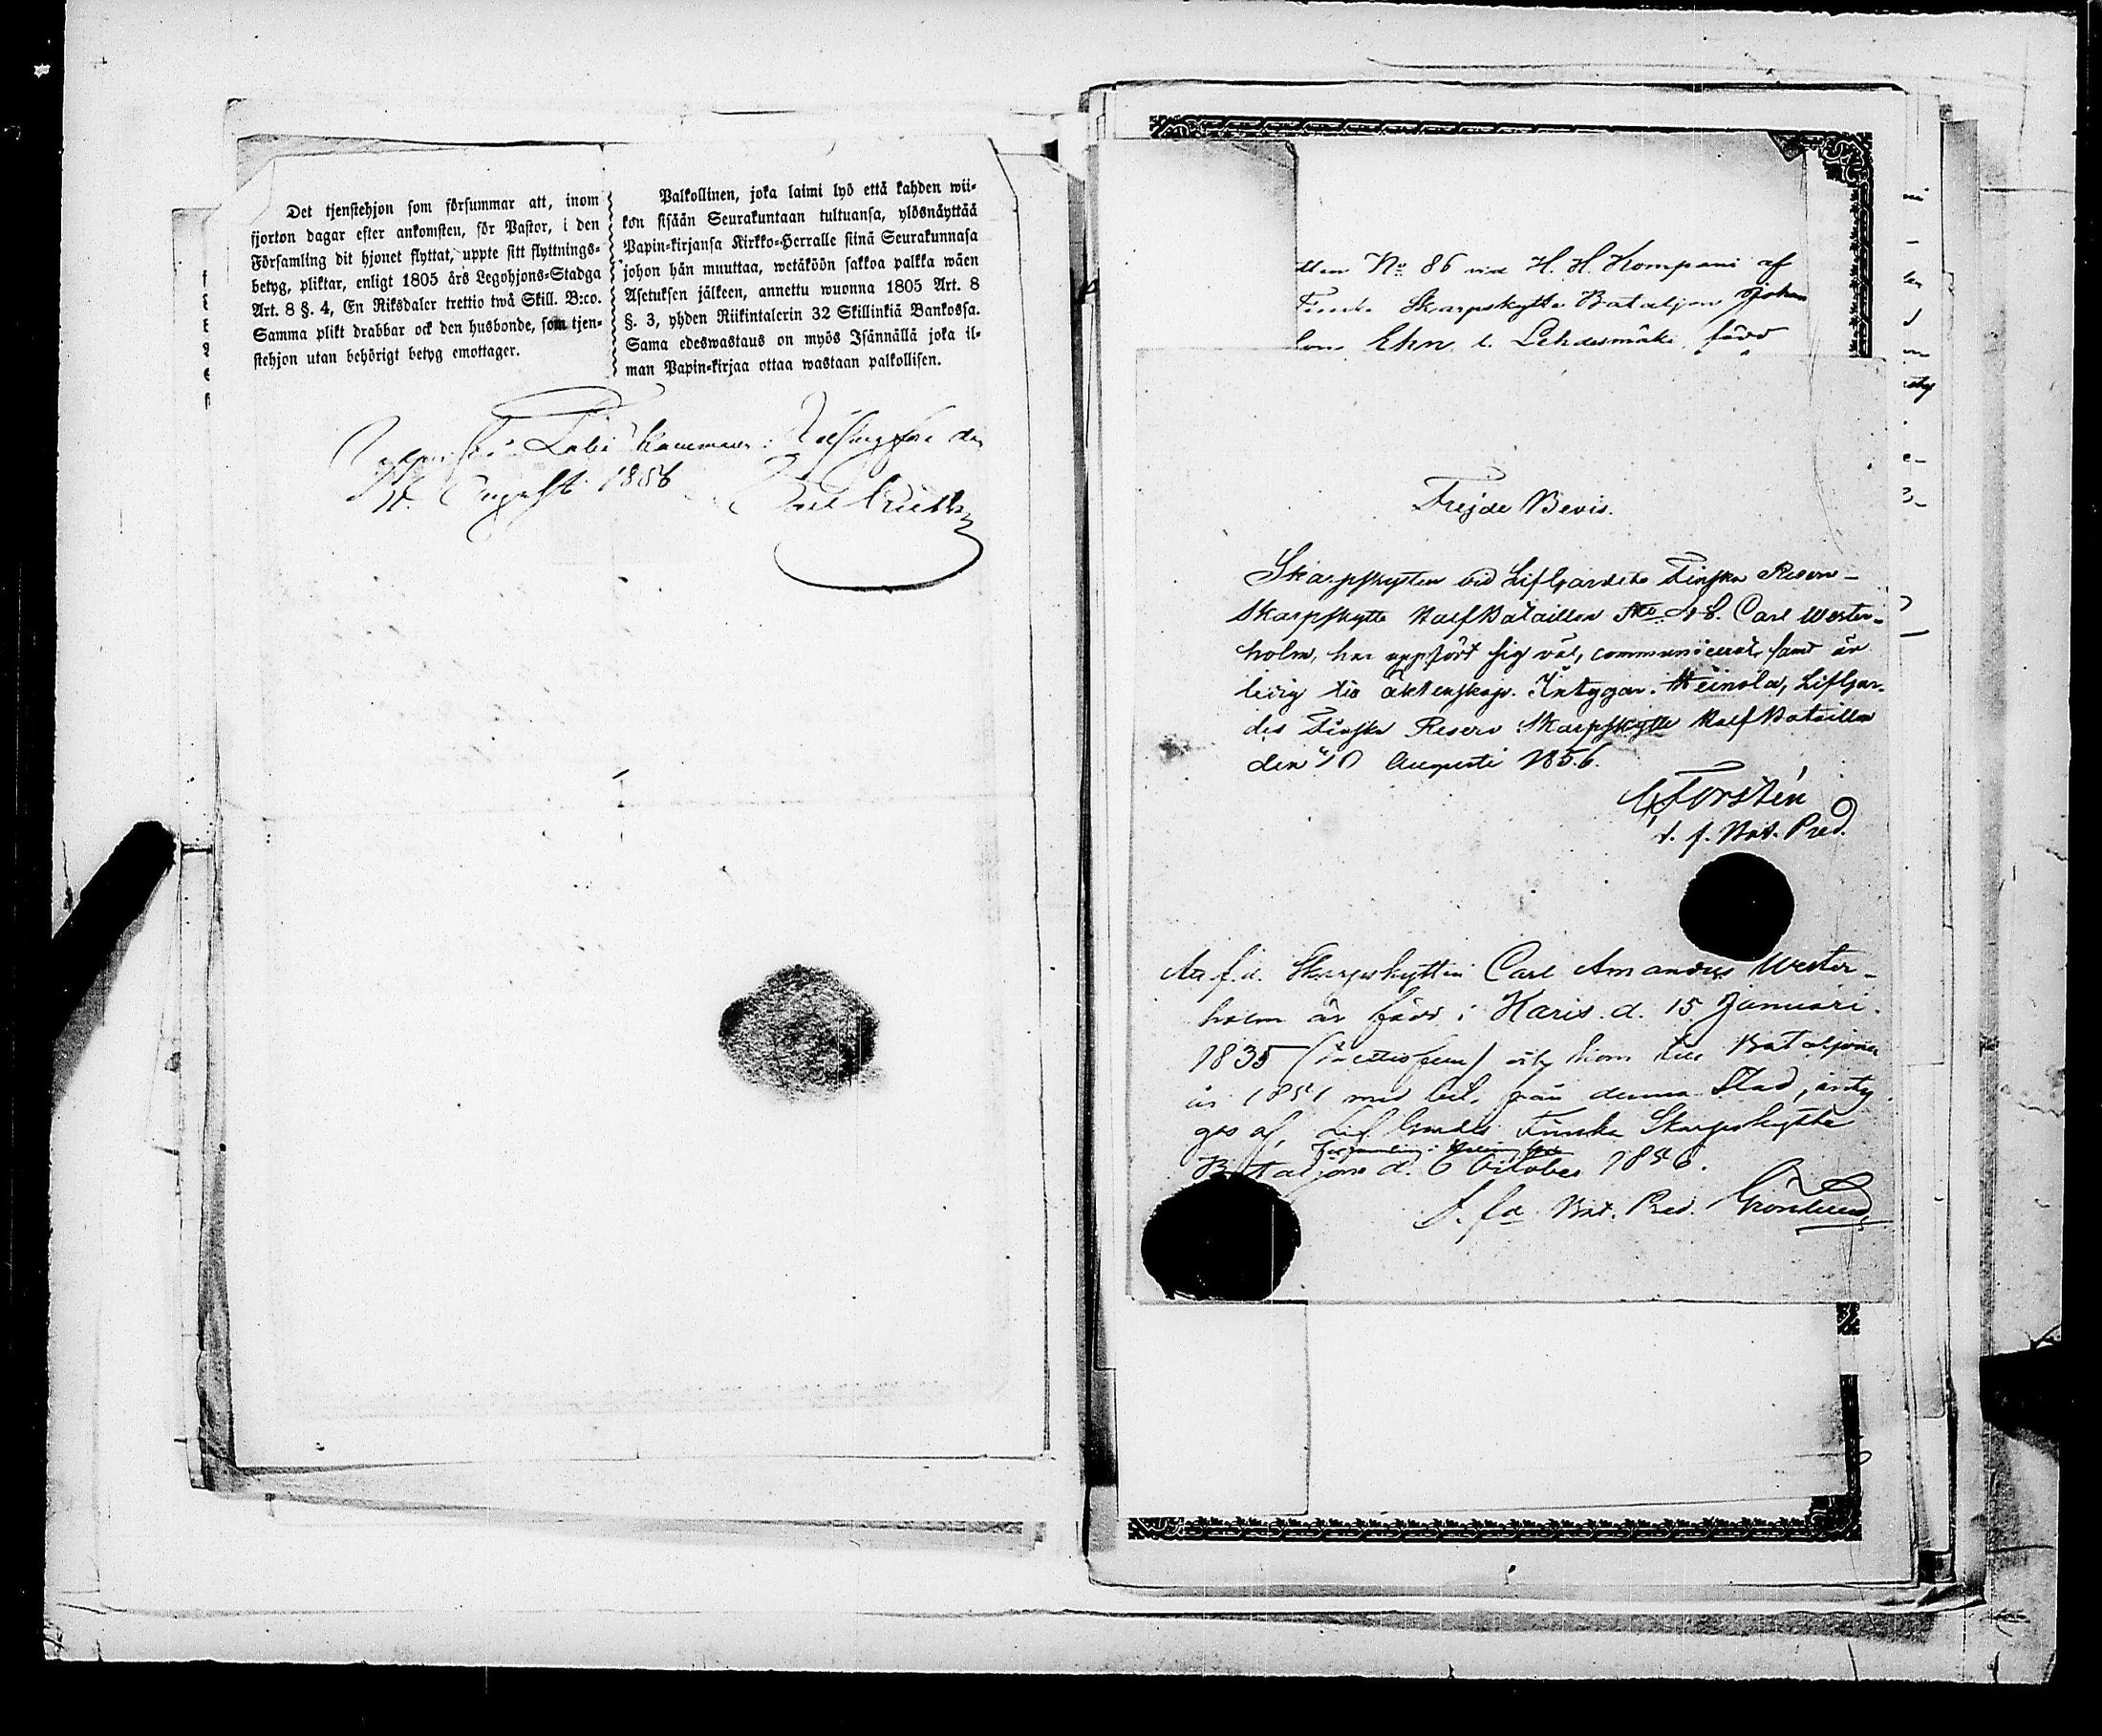 Det tjenstehjon som försummar att, inom
fjorton dagar efter ankomsten, för Pastor, i den
Församling dit hjonet flyttat, uppte sitt flyttnings-
betyg, pliktar, enligt 1805 års Legohjons-Stadga
Art. 8 §. 4, En Riksdaler trettio twå Skill. B:co.
Samma plikt drabbar ock den husbonde, som tjen-
stehjon utan behörigt betyg emottager.
Palkollinen, joka laimi lyö että kahden wii-
kon sisään Seurakuntaan tultuansa, ylösnäyttää
Papin-kirjansa Kirkko-Herralle siinä Seurakunnasa
johon hän muuttaa, wetäköön sakkoa palkka wäen
Asetuksen jälkeen, annettu wuonna 1805 Art. 8
§. 3, yhden Riikintalerin 32 Skillinkiä Bankossa.
Sama edeswastaus on myös Isännällä joka il-
man Papin-kirjaa ottaa wastaan palkollisen.
Helsingfors den
August 1856
tten No 86 vid H. H. Kompani af
Finska Skarpskytte Bataljon Johan
Ehn l. Lehdesmäki, född
Frejde Bevis.
Skarpskytten vid LifGardets Finska Reserv-
Skarpskytte HalfBataillon No 48. Carl Wester-
holm, har uppfört sig väl, communicerat, samt är
ledig till äktenskap. Intygar. Heinola, LifGar-
des Finska Reserv Skarpskytte Half Bataillon
den 10 Augusti 1856.
Forstén
t. f. Bat. Pred.
Att f.d. Skarpskytten Carl Amandus Wester-
holm är född i Karis d. 15 Januari
1835 och kom till Bataljonen
år 1851 med bet. från denna Stad, inty
gas af, Lif Gardes Finska Skarpskytte
Bataljons d. 6 October 1856.
Församling i Helsingfors
Bat. Pred. Grönlund